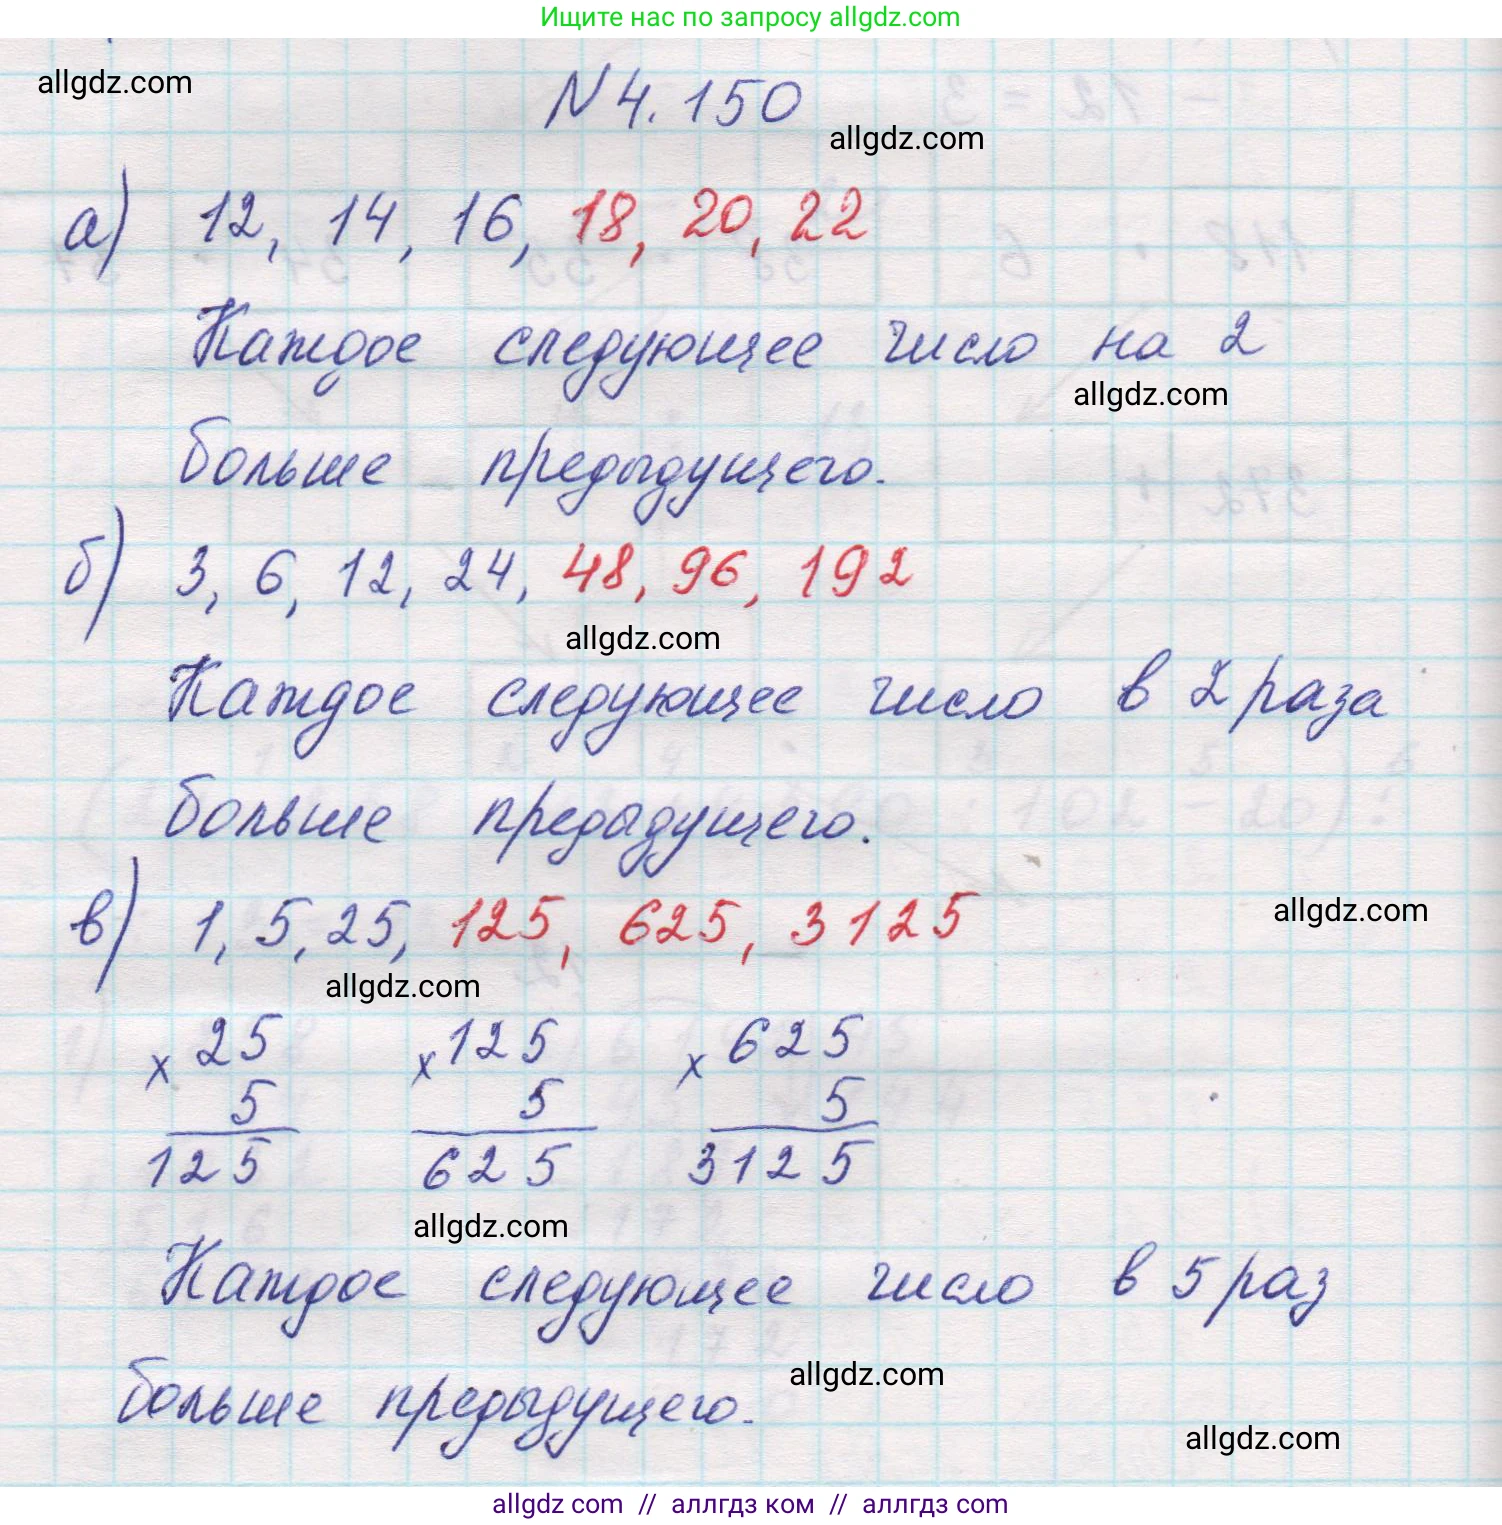 Ищите нас по запросу allgdz.com
allgdz.com
N 4.150
allgdz.com
а) 12, 14, 16, 18, 20, 22
Каждое следующее число на 2
allgdz.com
больше предыдущего.
б) 3, 6, 12, 24, 48, 96, 192
allgdz.com
Каждое следующее число в 2 раза
больше предыдущего.
в) 1, 5, 25, 125, 625, 3125
allgdz.com
allgdz.com
x 25 x 125 x 625
5 5 5
125 625 3125
allgdz.com
Каждое следующее число в 5 раз
allgdz.com
больше предыдущего.
allgdz.com
allgdz com // аллгдз ком // аллгдз com